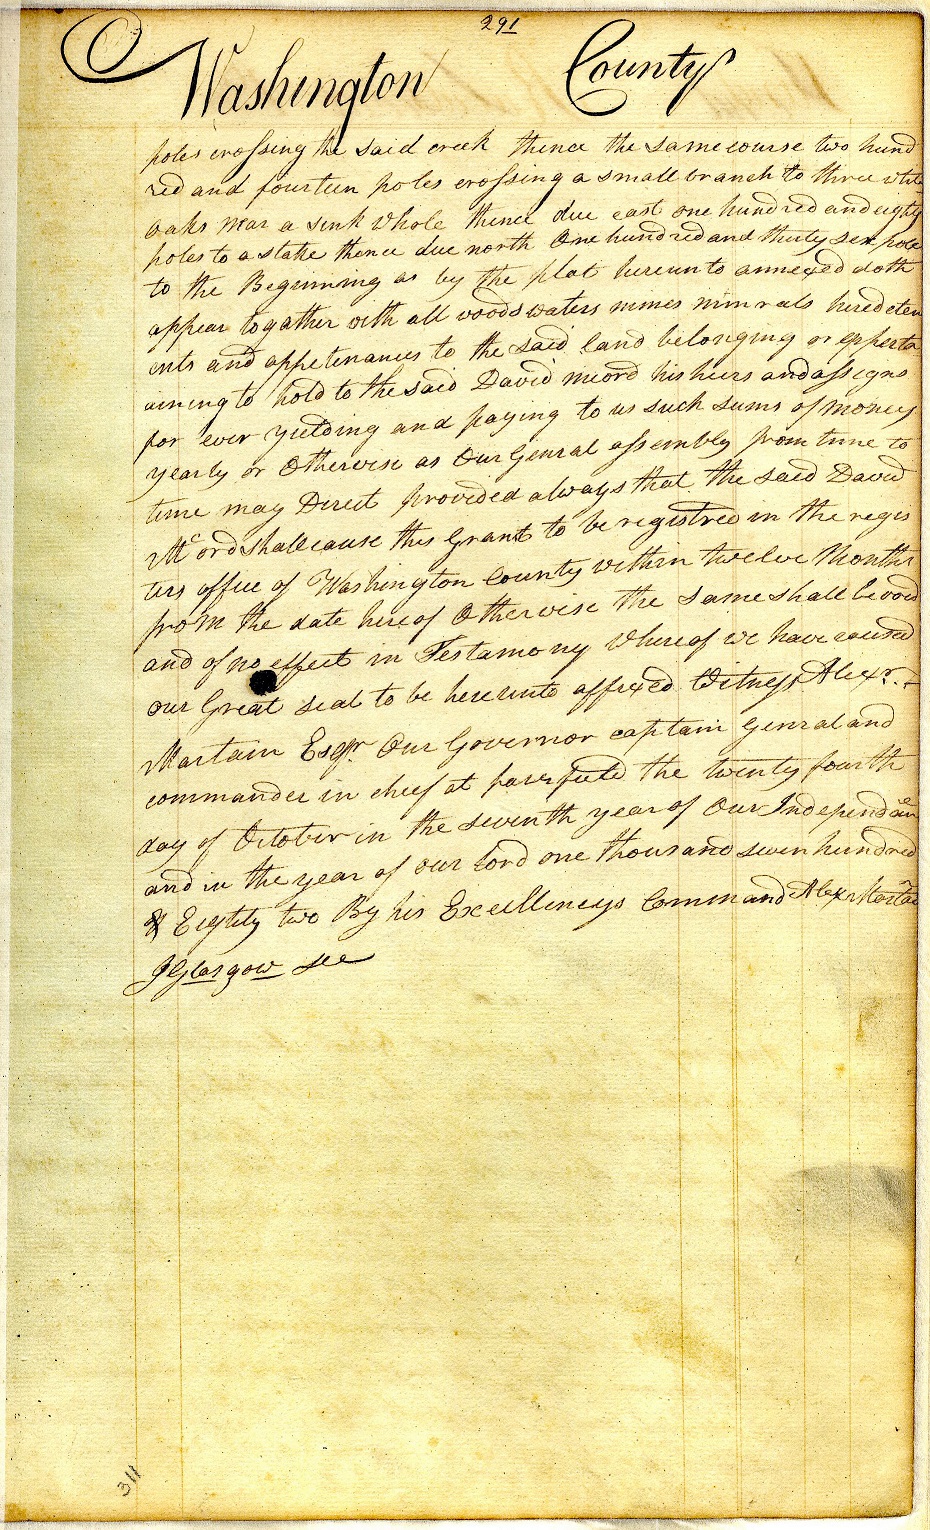 291
Washington County
poles crossing the said creek thence the same course two hund
red and fourteen poles crossing a small branch to three white
oaks near a sink whole thence due east one hundred and eighty
poles to a stake thence due north One hundred and thirty six poles
to the Beginning as by the plat hereunto annexed doth
appear togather with all woods waters mines minrals heredetem
ents and appetenances to the said land belonging or apperta
aining to hold to the said David mcord his heirs and assigns
for ever yielding and paying to us such sums of money
yearly or Otherwise as Our Genral assembly from time to
time may Direct provided always that the said David
Mcord shall cause this Grant to be registred in the regis
ters office of Washington County within twelve Months
from the date hereof Otherwise the same shall be void
and of no effect in Testamony Whereof we have caused
our Great seal to be hereunto affixed Witness Alexr.
Martain Esqr. Our Governor captain Genral and
commander in chief at fairfield the twenty fourth
day of October in the seventh year of Our Independance
and in the year of our lord one thousand seven hundred
& Eighty two By his Excellincys Command Alex Martain
J Glasgow see
311